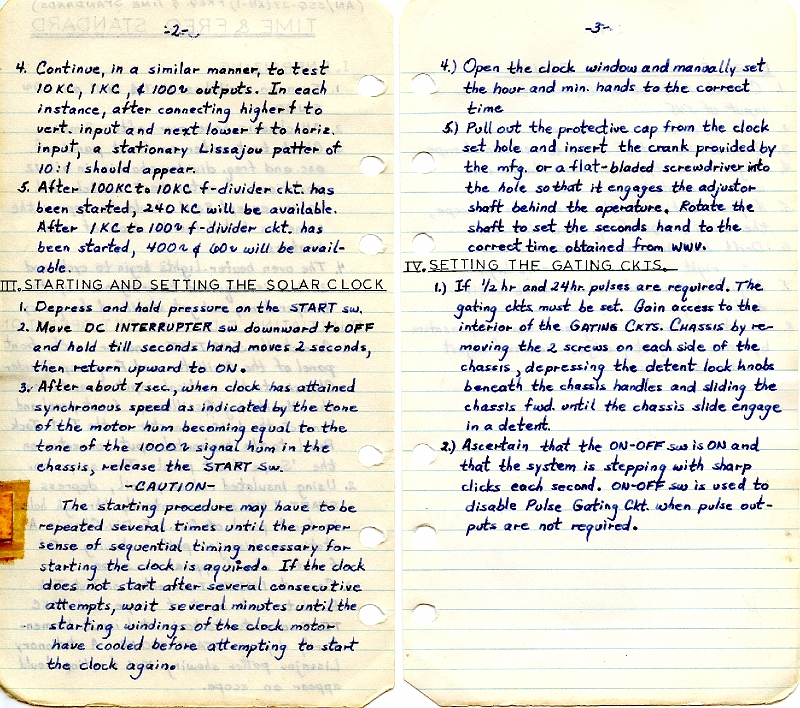 -2-
4. Continue, in a similar manner, to test
10 KC, 1 KC, & 100~ outputs. In each
instance, after connecting higher f to
vert. input and next lower f to horiz.
input, a stationary Lissajou patter of
10:1 should appear.
5. After 100KC to 10KC f-divider ckt. has
been started, 240 KC will be available.
After 1 KC to 100~ f-divider ckt. has
been started, 400~ & 60~ will be avail-
able.
III. STARTING AND SETTING THE SOLAR CLOCK
1. Depress and hold pressure on the START sw.
2. Move DC INTERRUPTER sw downward to OFF
and hold till seconds hand moves 2 seconds,
then return upward to ON.
3. After about 7 sec., when clock has attained
synchronous speed as indicated by the tone
of the motor hum becoming equal to the
tone of the 1000~ signal hum in the
chassis, release the START Sw.
-CAUTION-
The starting procedure may have to be
repeated several times until the proper
sense of sequential timing necessary for
starting the clock is aquired. If the clock
does not start after several consecutive
attempts, wait several minutes until the
starting windings of the clock motor
have cooled before attempting to start
the clock again.
-3-
4.) Open the clock window and manually set
the hour and min. hands to the correct
time
5.) Pull out the protective cap from the clock
set hole and insert the crank provided by
the mfg. or a flat-bladed screwdriver into
the hole so that it engages the adjustor
shaft behind the aperature. Rotate the
shaft to set the seconds hand to the
correct time obtained from WWV.
IV. SETTING THE GATING CKTS.
1.) If 1/2 hr and 24 hr. pulses are required. The
gating ckts. must be set. Gain access to the
interior of the GATING CKTS. CHASSIS by re-
moving the 2 screws on each side of the
chassis, depressing the detent lock knobs
beneath the chassis handles and sliding the
chassis fwd. until the chassis slide engage
in a detent.
2.) Ascertain that the ON-OFF sw is ON and
that the system is stepping with sharp
clicks each second. ON-OFF sw is used to
disable Pulse Gating Ckt. when pulse out-
puts are not required.